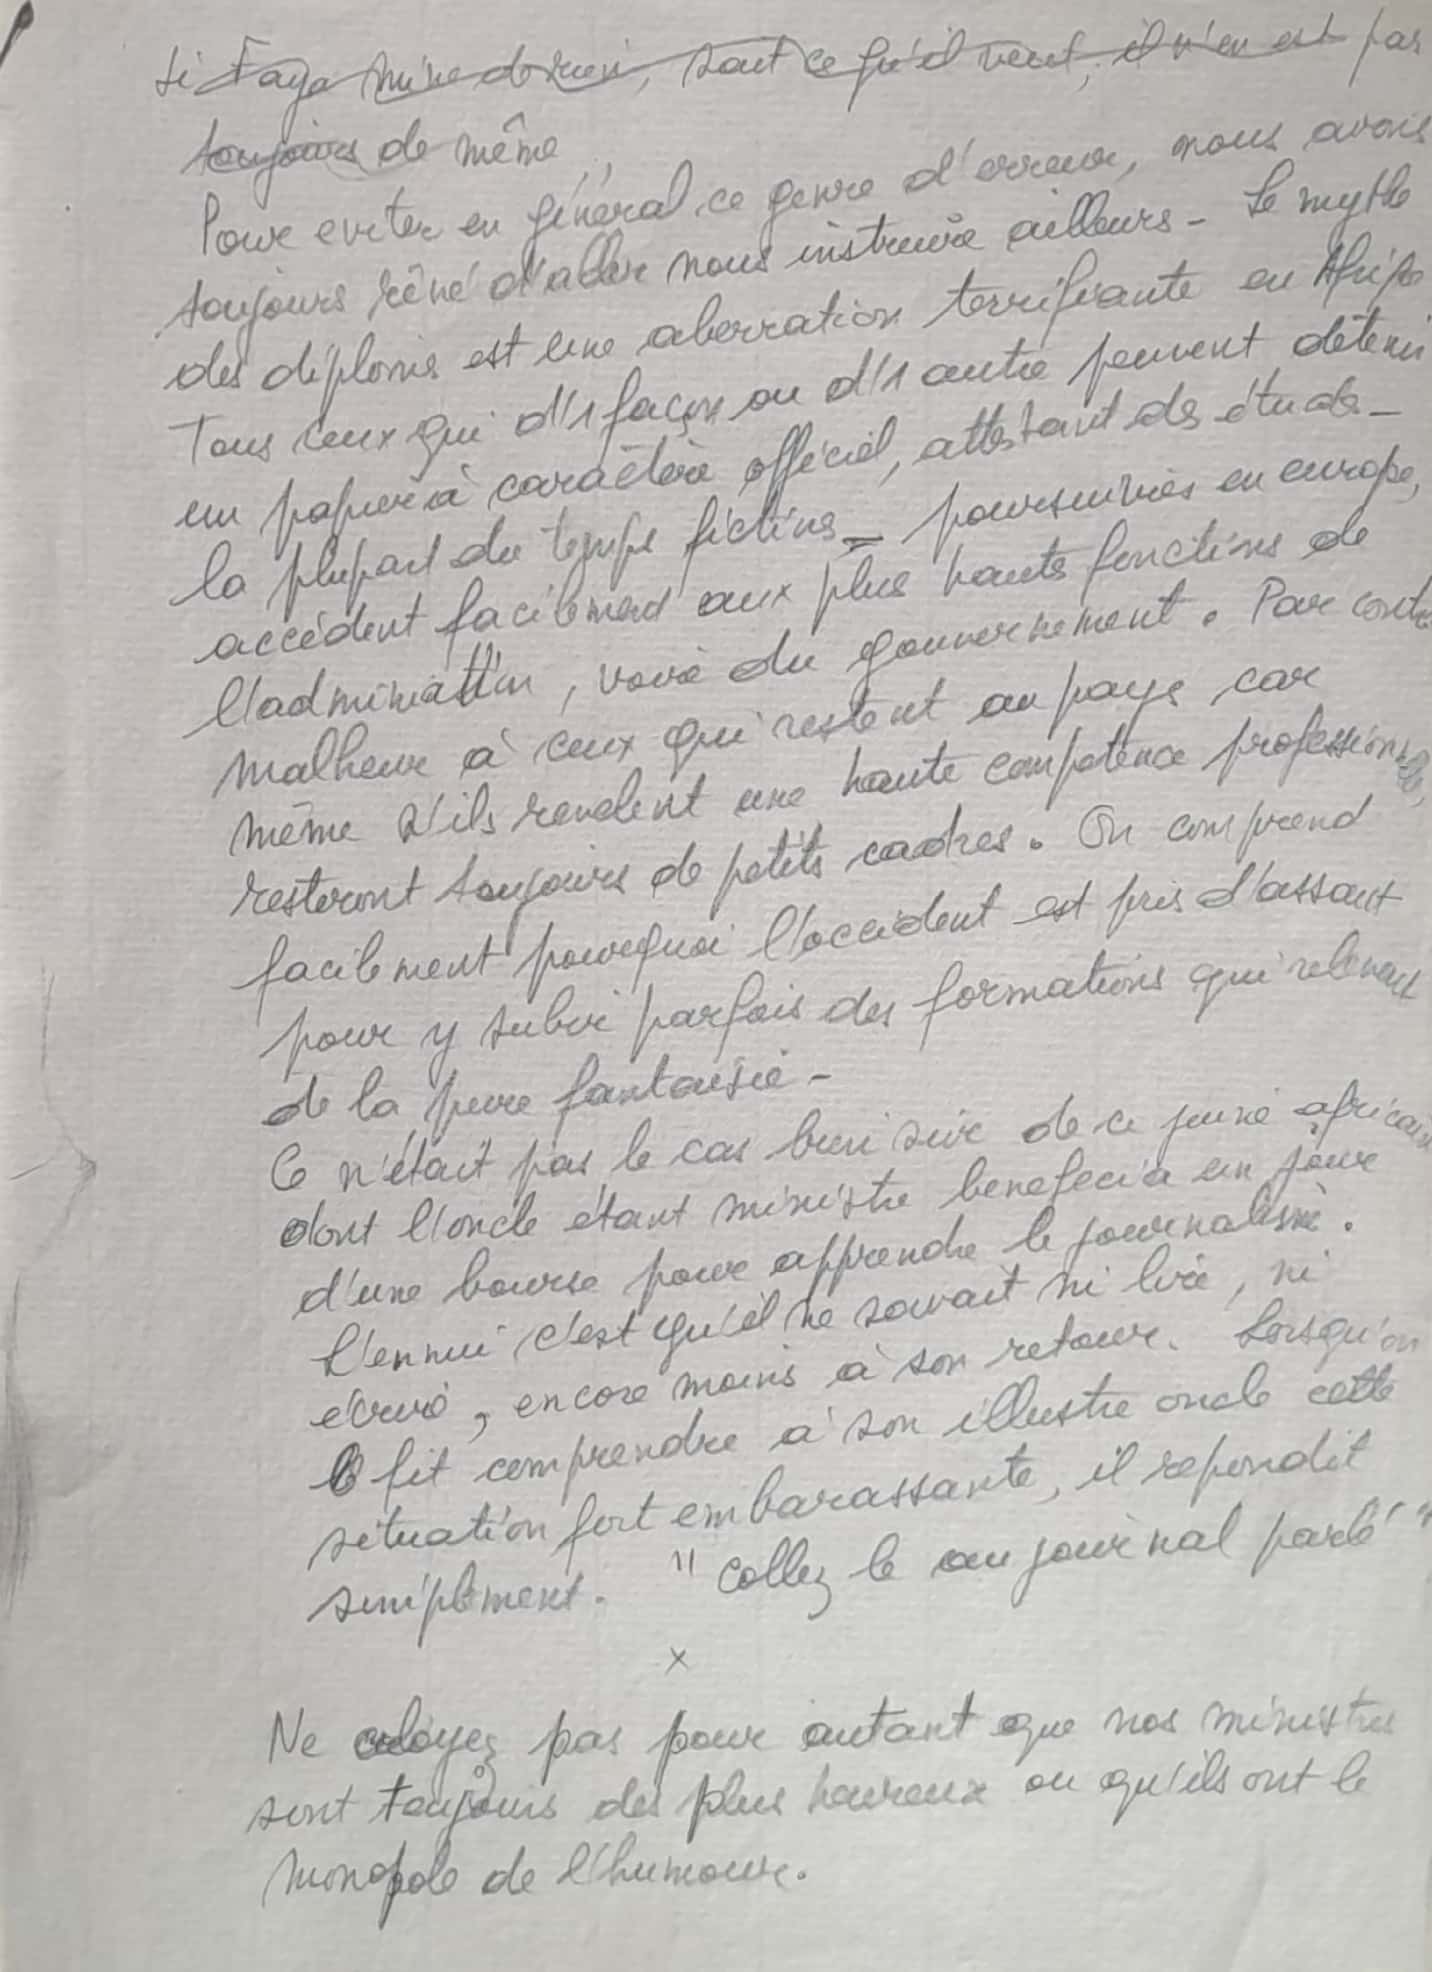 Si Faya mine de rien, sait ce qu'il veut, il n'en est pas
toujours de même.
Pour eviter en général ce genre d'erreur, nous avons
toujours rêvé d'aller nous instruire ailleurs - Le mythe
des diplomes est une aberration terrifiante en Afrique
Tous ceux qui d'1 façon ou d'1 autre peuvent détenir
un papier à caractère officiel, attestant des études -
la plupart du temps fictives - poursuivies en europe,
accèdent facilement aux plus hautes fonctions de
l'administt'on, voire du gouvernement. Par contre
malheur à ceux qui restent au pays car
même s'ils revelent une haute compétence professionnelle,
resteront toujours de petits cadres. On comprend
facilement pourquoi l'occident est pris d'assaut
pour y subir parfois des formations qui relevent
de la pure fantaisie -
Ce n'était pas le cas bien sûr de ce jeune africain
dont l'oncle étant ministre beneficia un jour
d'une bourse pour apprendre le journalisme.
L'ennui c'est qu'il ne savait ni lire, ni
écrire, encore moins à son retour. Lorsqu'on
fit comprendre à son illustre oncle cette
situation fort embarassante, il repondit
simplement. "Collez le au journal parlé"
x
Ne croyez pas pour autant que nos ministres
sont toujours des plus heureux ou qu'ils ont le
monopole de l'humour.